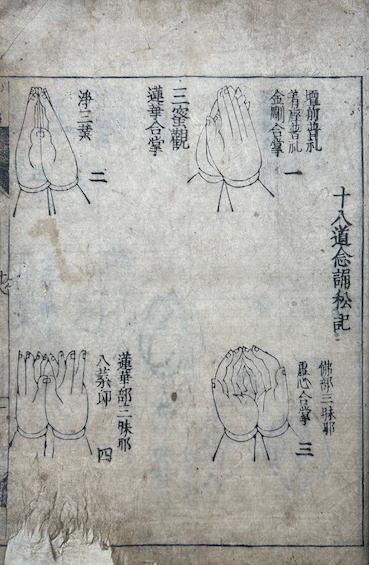 十八道念誦私記
壇前普礼
着座普礼
金剛合掌
一
三密觀
蓮華合掌
淨三業
二
佛部三昧耶
虚心合掌
三
蓮華部三昧耶
八葉印
四